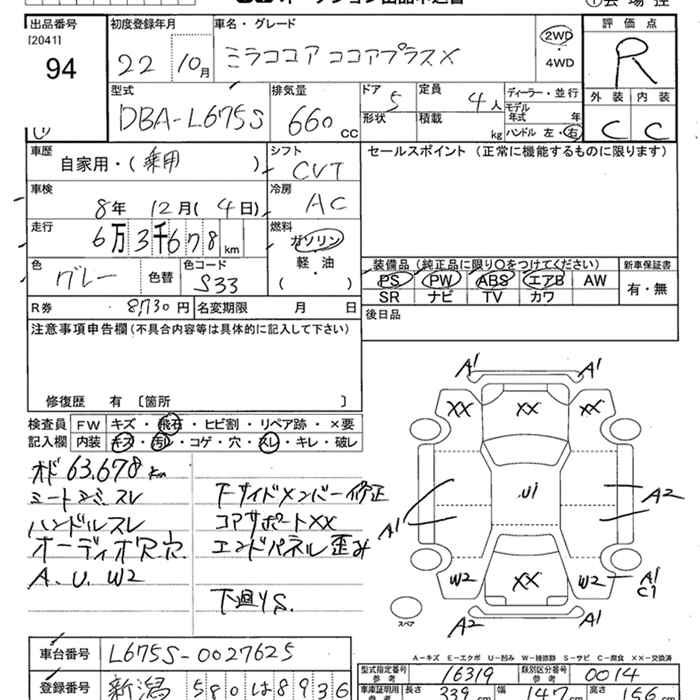 出品番号 初度登録年月 車名・グレード 評価点
[2041]
94 22 10月 ミラココア ココアプラスX 2WD R
・
4WD
型式 排気量 ドア 定員 ディーラー・並行 外装 内装
DBA-L675S 660 CC 5 4人 モデル年式 年 C C
形状 積載 kg ハンドル 左・右
車歴 自家用・(乗用) シフト CVT セールスポイント(正常に機能するものに限ります)
車検 8年 12月(4日) 冷房 AC
走行 6万3千678km 燃料 ガソリン
軽・油
( )
色 グレー 色替 色コード S33
装備品(純正品に限り○をつけてください) 新車保証書
PS PW ABS エアB AW 有・無
SR ナビ TV カワ
R券 8,730円 名変期限 月 日 後日品
注意事項申告欄(不具合内容等は具体的に記入して下さい)
修復歴 有 〔箇所 〕
検査員 FW キズ・飛石・ヒビ割・リペア跡・×要
記入欄 内装 キズ・汚レ・コゲ・穴・スレ・キレ・破レ
オド63,678km
シートシミ スレ 下サイドメンバー修正
ハンドルスレ コアサポートXX
オーディオ穴 エンドパネル歪み
A.U.W2
下廻りS.
A1 A1
XX XX XX
U1
A1 A2
W2 XX W2 A1
C1
A2 A2
スペア
A-キズ E-エクボ U-凹み W-補修跡 S-サビ C-腐食 XX-交換済
車台番号 L675S-0027625
型式指定番号 16319 類別区分番号 0014
登録番号 新潟 580は8936
車庫証明用参考 長さ 339cm 幅 147cm 高さ